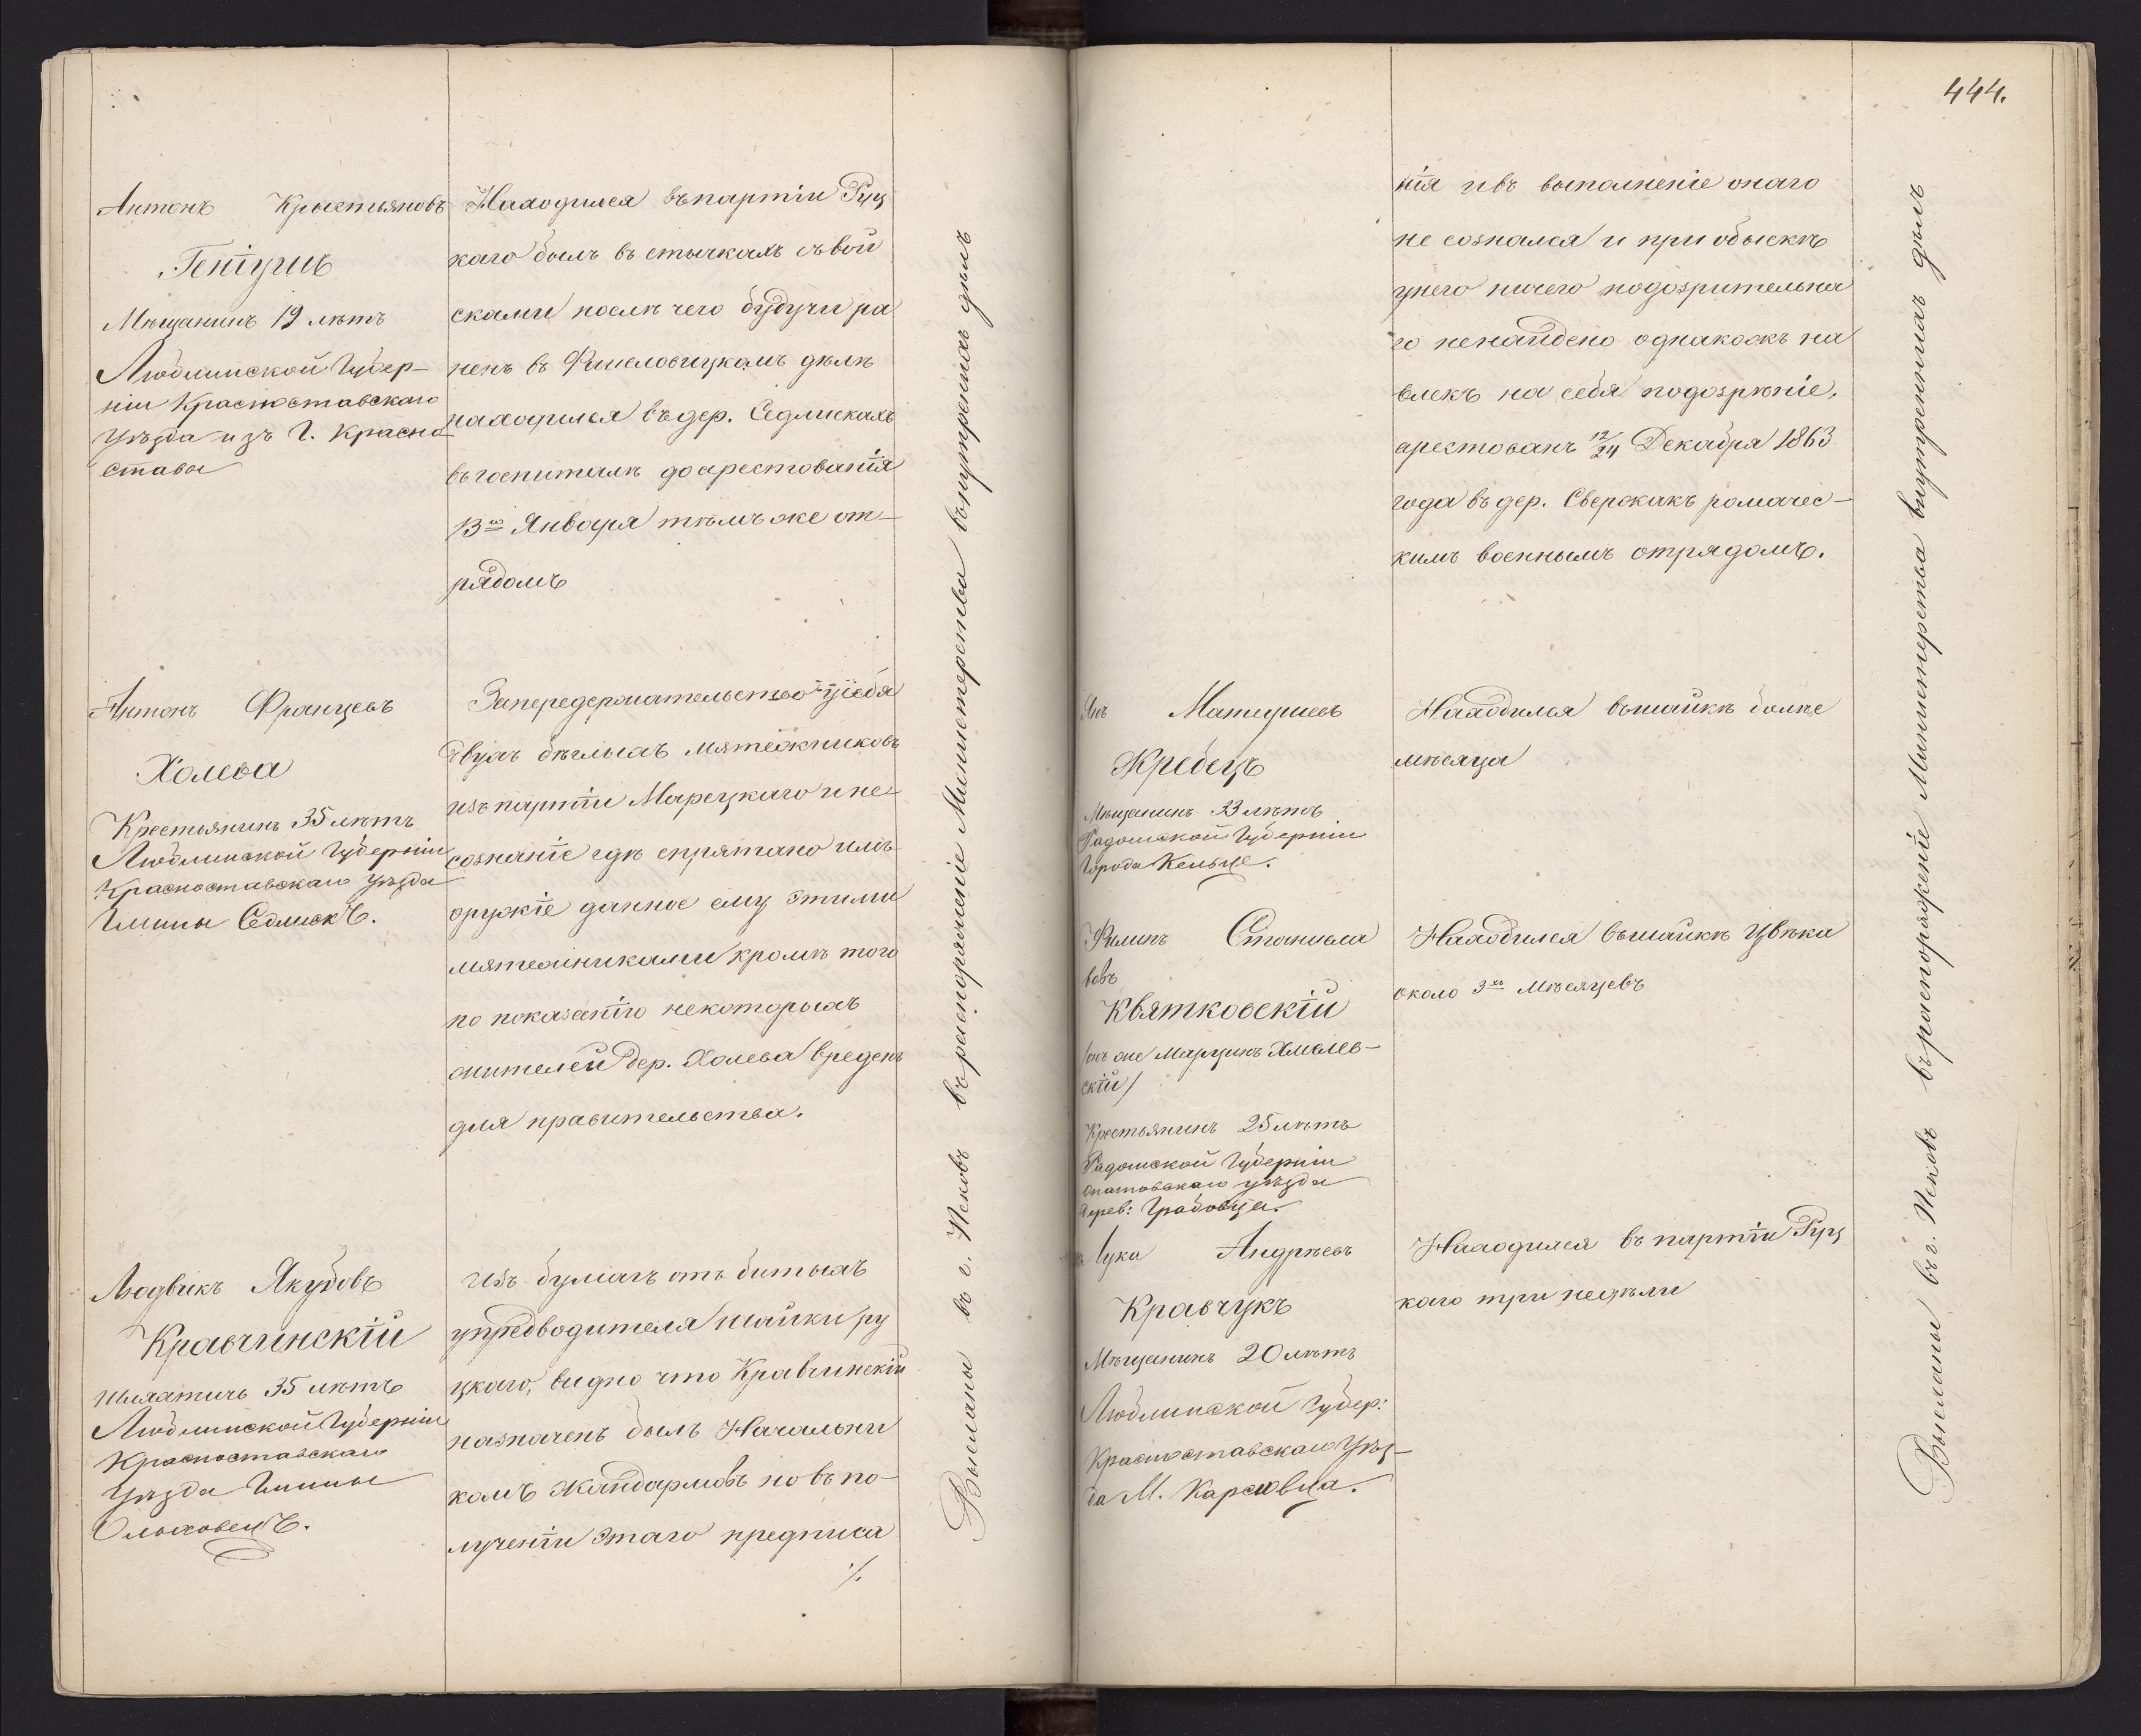 Антонъ Крыстьяновъ
Геніушъ
Мѣщанинъ 19 лѣтъ
Люблинской Губер-
ніи Красноставскаго
Уѣзда изъ Г. Красно
ставы
Находился въ партіи Руц
каго былъ въ стычкахъ съ вой
сками послѣ чего будучи ра
ненъ въ дѣлѣ
находился въ дер. Седлискахъ
въ госпиталѣ до арестованія
13го Января тѣмъ же от-
рядомъ
Антонъ Францевъ
Холева
Крестьянинъ 35 лѣтъ
Люблинской Губерніи
Красноставскаго Уѣзда
Гмины Седлискъ.
За передержательство у себя
двухъ бѣглыхъ мятежниковъ
изъ партіи Марецкаго и не
сознаніе гдѣ спрятано имъ
оружіе данное ему этими
мятежниками кромѣ того
по показанію некоторыхъ
жителей дер. Холева вреденъ
для правительства.
Людвикъ Якубовъ
Кравчинскій
шляхтичь 35 лѣтъ
Люблинской Губерніи
Красноставскаго
Уѣзда Гмины
Ольховецъ.
Изъ бумагъ отъ битыхъ
у предводителя шайки Ру
цкаго, видно что Кравчинскій
назначенъ былъ Начальни
комъ жандармовъ но въ по-
лученіи этаго предписа
./.
Высланы въ г. Псковъ въ распоряженіе Министерства внутреннихъ дѣлъ
444.
нія и въ выполненіе онаго
не сознался и при обыскѣ
у него ничего подозрительна
го ненайдено однакожъ на
влекъ на себя подозрѣніе.
арестованъ 12/24 Декабря 1863
года въ дер. Свержахъ
кимъ военнымъ отрядомъ.
Янъ Матеушевъ
Жребецъ
Мѣщанинъ 33 лѣтъ
Радомской Губерніи
Города Кельце.
Находился въ шайкѣ болѣе
мѣсяца
Филипъ Станисла
вовъ
Квятковскій
/онъ же Марцинъ Хмелев-
скій/
Крестьянинъ 25 лѣтъ
Радомской Губерніи
Опатовскаго уѣзда
дерев: Грабовца.
Находился въ шайкѣ Цвѣка
около 3хъ мѣсяцевъ
Лука Андрѣевъ
Кравчукъ
Мѣщанинъ 20 лѣтъ
Люблинской Губер:
Красноставскаго Уѣз-
да М.
Находился въ партіи Руц
каго три недѣли
Высланы въ г. Псковъ въ распоряженіе Министерства внутреннихъ дѣлъ